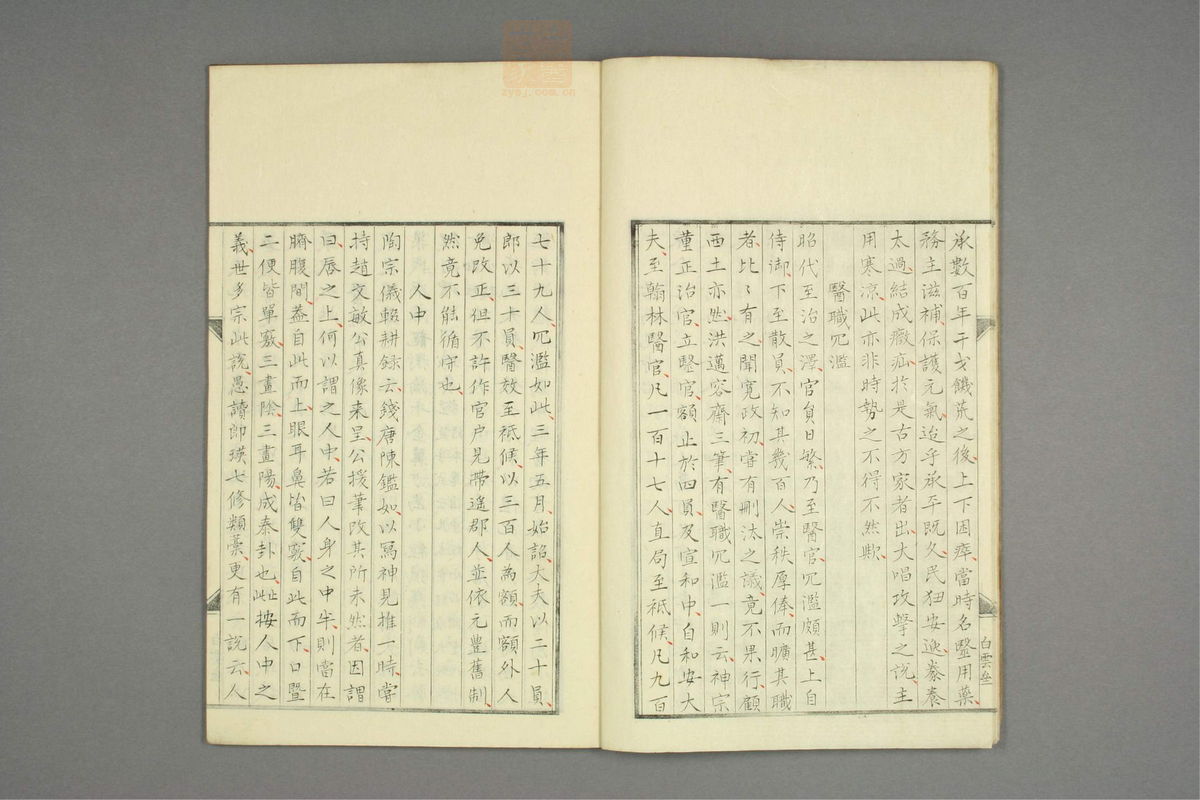 承數百年干戈饑荒之後上下困瘁當時名毉用藥
務主滋補保護元氣迨乎承平既久民狃安逸豢養
太過結成癥疝於是古方家者出大唱攻擊之說主
用寒涼此亦非時勢之不得不然歟
醫職冗濫
昭代至治之澤官負日繁乃至醫官冗濫頗甚上自
侍御下至散員不知其幾百人崇秩厚俸而曠其職
者比〻有之聞寛政初嘗有刪汰之議竟不果行顧
西土亦然洪邁容齋三筆有醫職冗濫一則云神宗
董正治官立毉官額止於四員及宣和中自和安大
夫至翰林醫官凡一百十七人直局至祗候凡九百
七十九人冗濫如此三年五月始詔大夫以二十員
郎以三十員醫效至祗候以三百人為額而額外人
免改正但不許作官户見帶遥郡人並依元豐舊制
然竟不能循守也
人中
陶宗儀輟耕録云錢唐陳鑑如以寫神見推一時嘗
持趙文敏公真像来呈公援筆改其所未然者因謂
曰唇之上何以謂之人中若曰人身之中半則當在
臍腹間葢自此而上眼耳鼻皆雙竅自此而下口暨
二便皆單竅三畫陰三畫陽成泰卦也此按人中之
義世多宗此說愚讀郎瑛七修類藁更有一說云人
白雲
zysj.com.cn